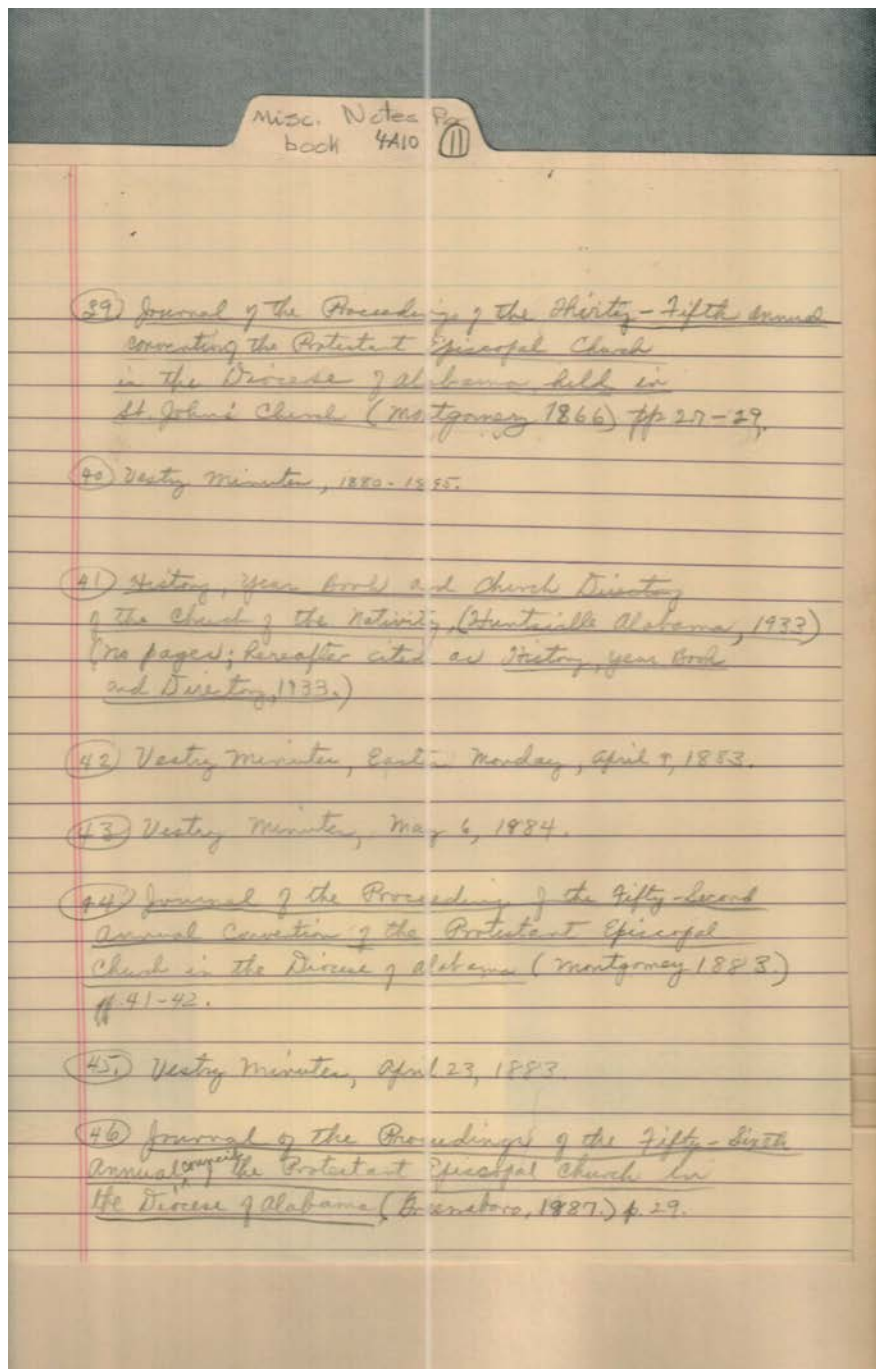 Misc. Notes Pg
book 4A10 (11)
(39) Journal of the Proceedings of the Thirty-Fifth annual
conventing the Protestant Episcopal Church
in the Diocese of Alabama held in
St. John's Church (Montgomery 1866) pp 27-29.
(40) Vestry Minutes, 1880-1895.
(41) History, Year Book and Church Directory
of the Church of the Nativity, (Huntsville Alabama, 1933)
(no pages; hereafter cited as History, year Book
and Directory, 1933.)
(42) Vestry Minutes, Monday, April, 1883.
(43) Vestry Minutes, May 6, 1884.
(44) Journal of the Proceeding of the Fifty-Second
Annual Convention of the Protestant Episcopal
Church in the Diocese of Alabama (Montgomey 1883.)
pp. 41-42.
(45.) Vestry Minutes, April 23, 1883.
(46) Journal of the Proceedings of the Fifty-Sixth
Annual council the Protestant Episcopal Church in
the Diocese of Alabama (Greensboro, 1887.) p. 29.